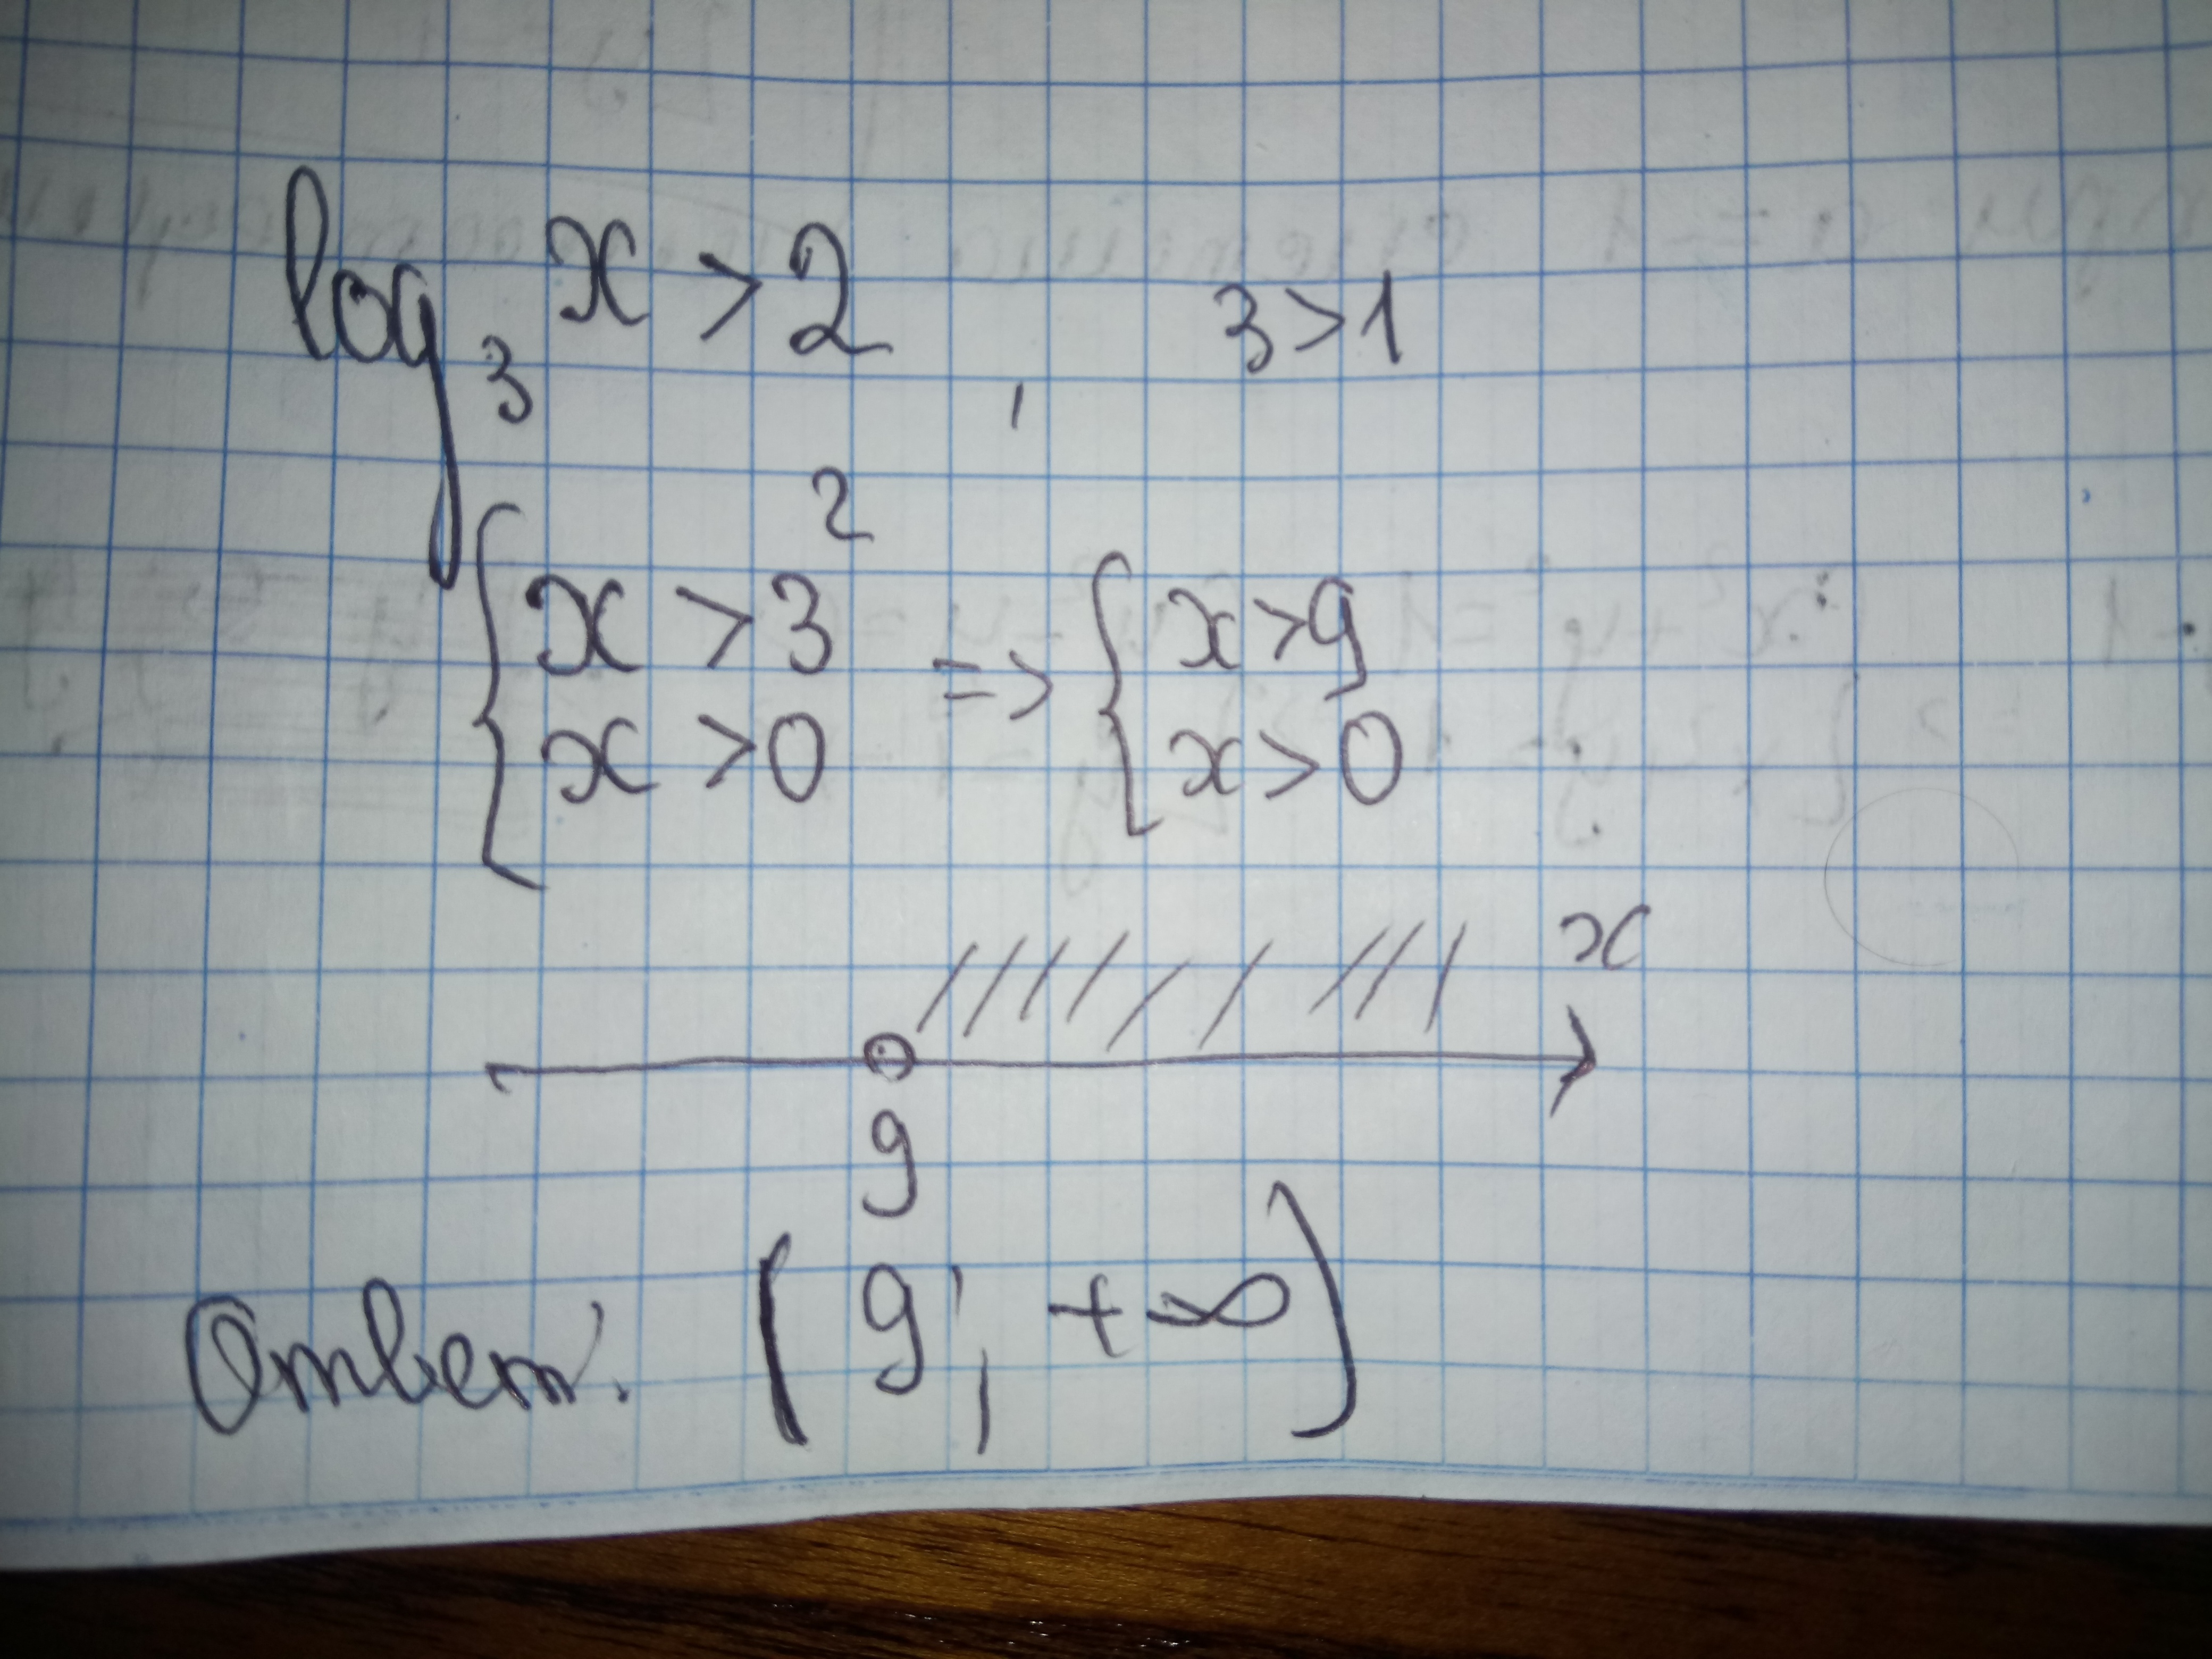 log₃ x > 2, 3 > 1
{ x > 3² => { x > 9
{ x > 0 { x > 0
x
9
Ответ: (9; +∞)